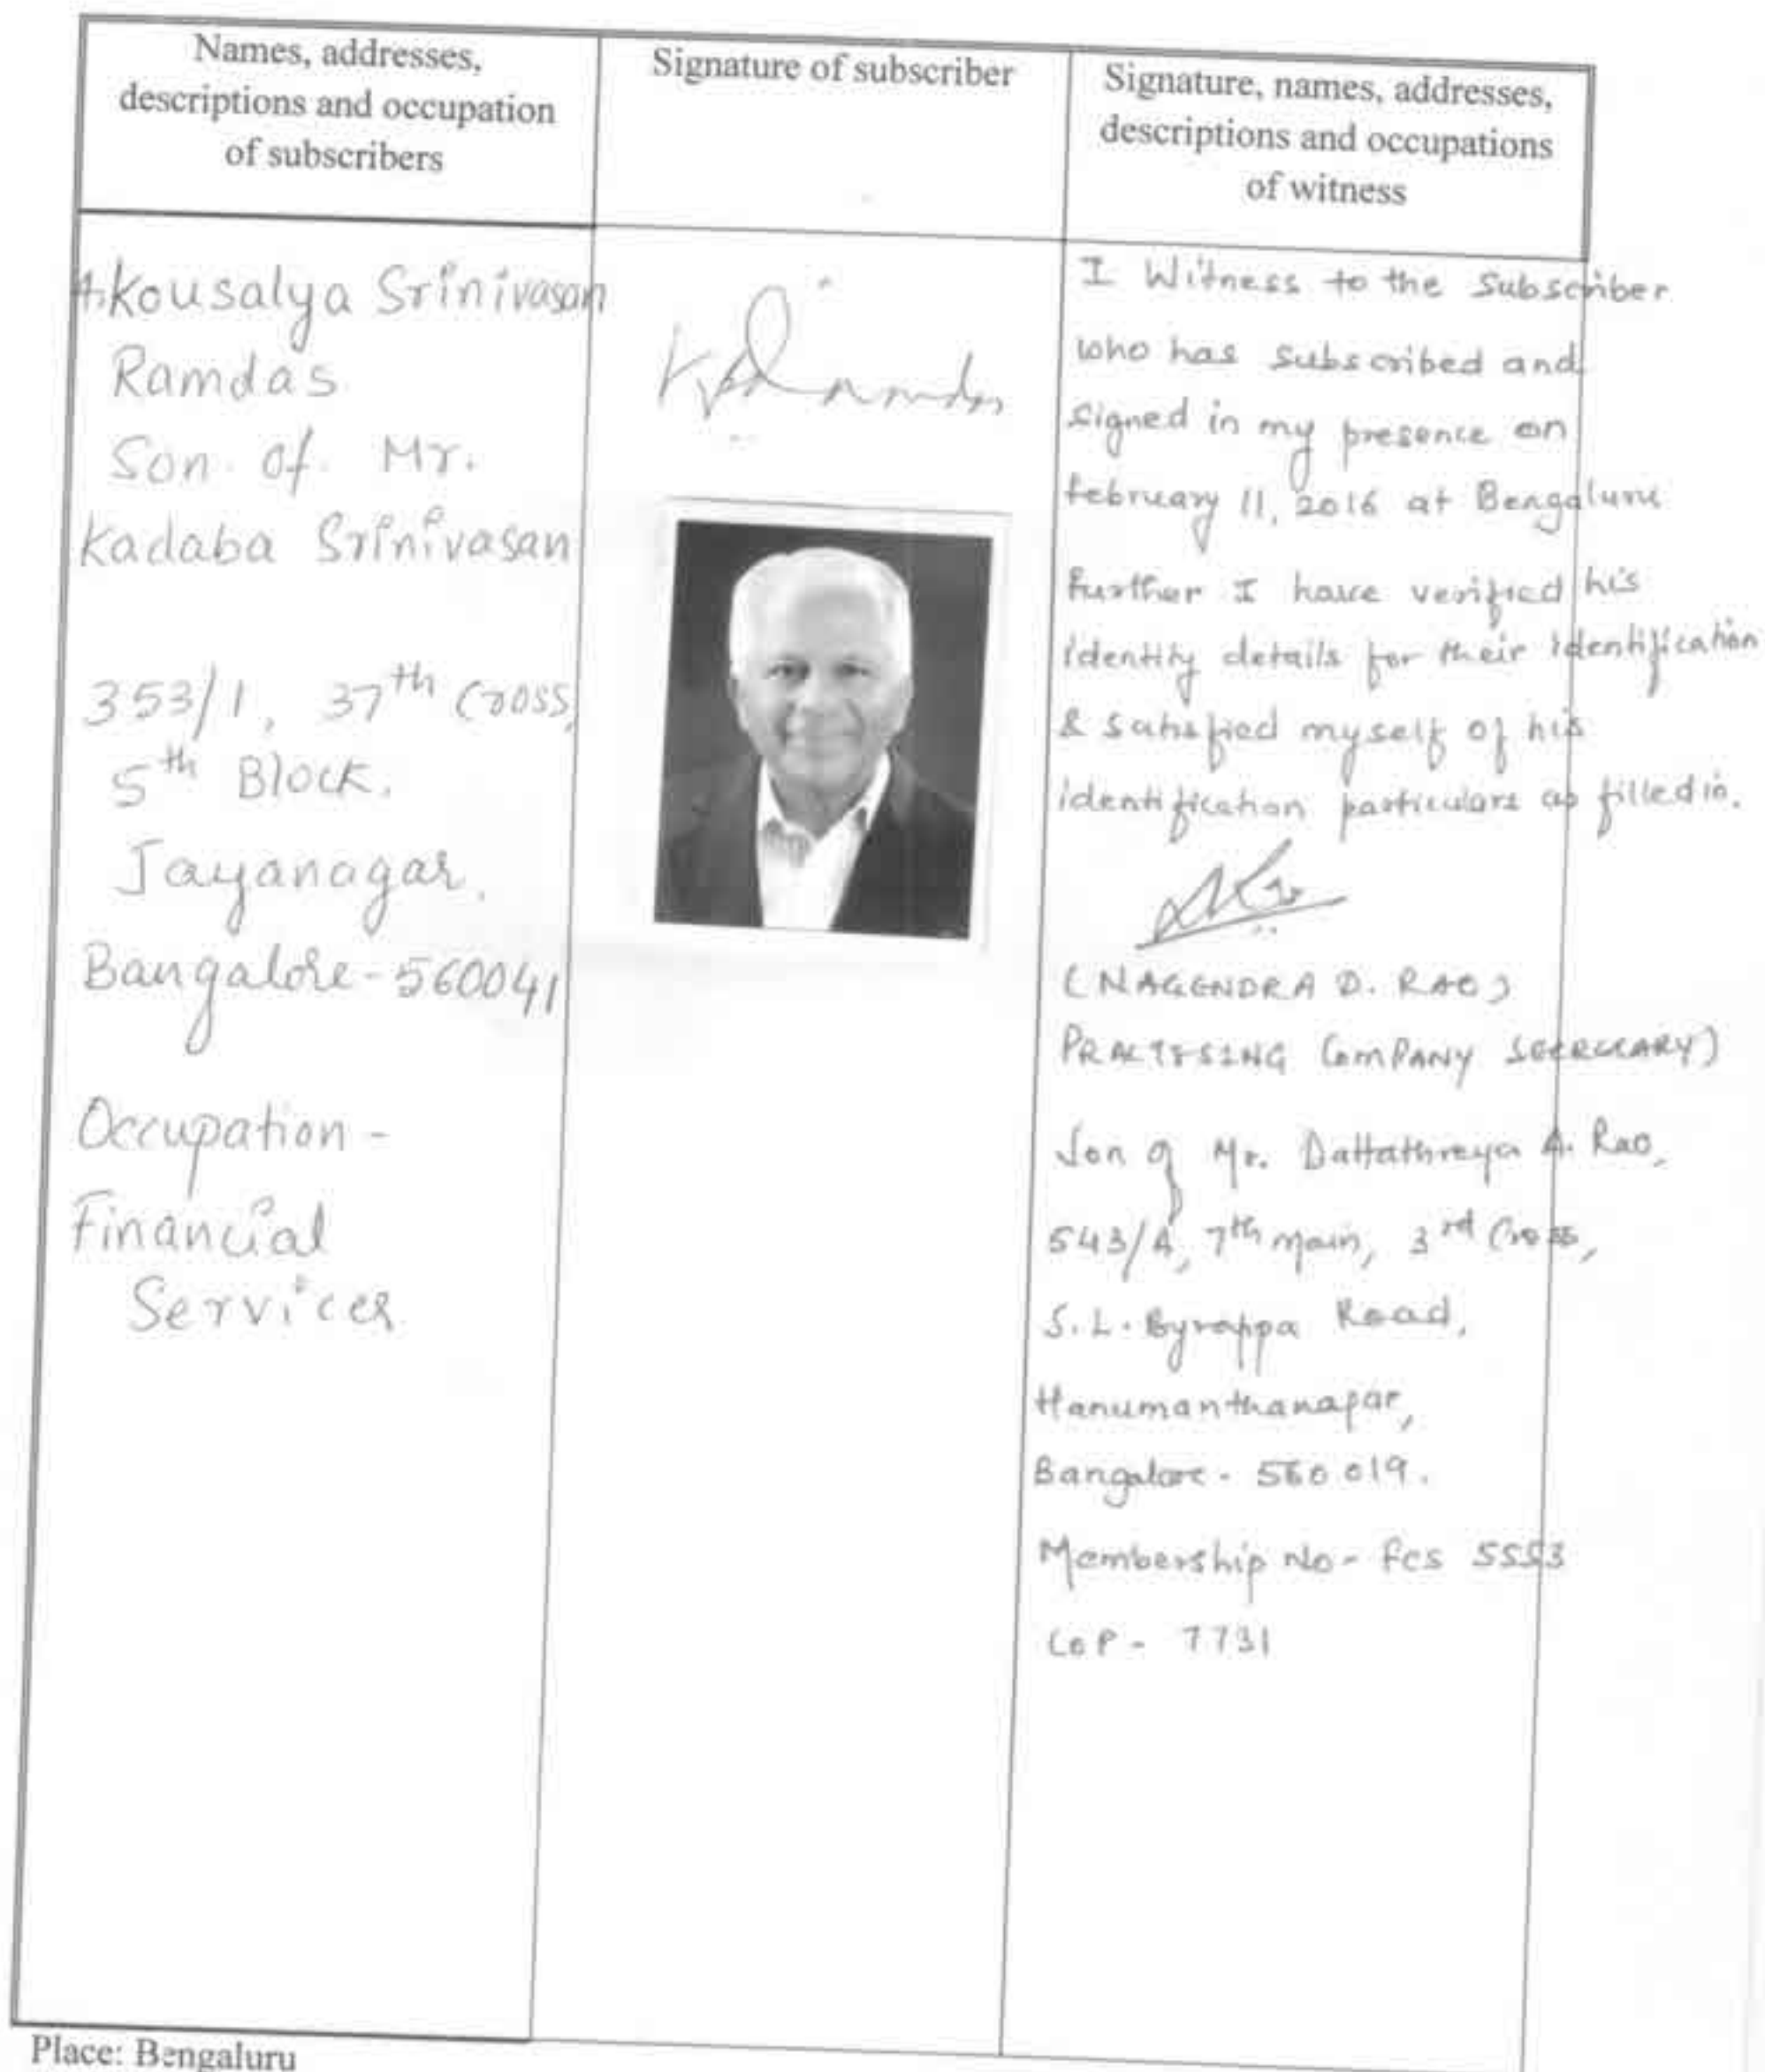 Names, addresses,
descriptions and occupation
of subscribers
Signature of subscriber
Signature, names, addresses,
descriptions and occupations
of witness
Kousalya Srinivasan
Ramdas
Son of Mr.
Kadaba Srinivasan
353/1, 37th Cross,
5th Block,
Jayanagar,
Bangalore-560041
Occupation -
Financial
Services
I Witness to the Subscriber
who has subscribed and
signed in my presence on
february 11, 2016 at Bengaluru
further I have verified his
identity details for their identification
& satisfied myself of his
identification particulars as filled in.
(NAGENDRA D. RAO)
PRACTISING COMPANY SECRETARY)
Son of Mr. Dattathreya A. Rao,
543/A, 7th Main, 3rd Cross,
S.L. Byrappa Road,
Hanumanthanagar,
Bangalore - 560 019.
Membership No - fcs 5553
COP - 7731
Place: Bengaluru